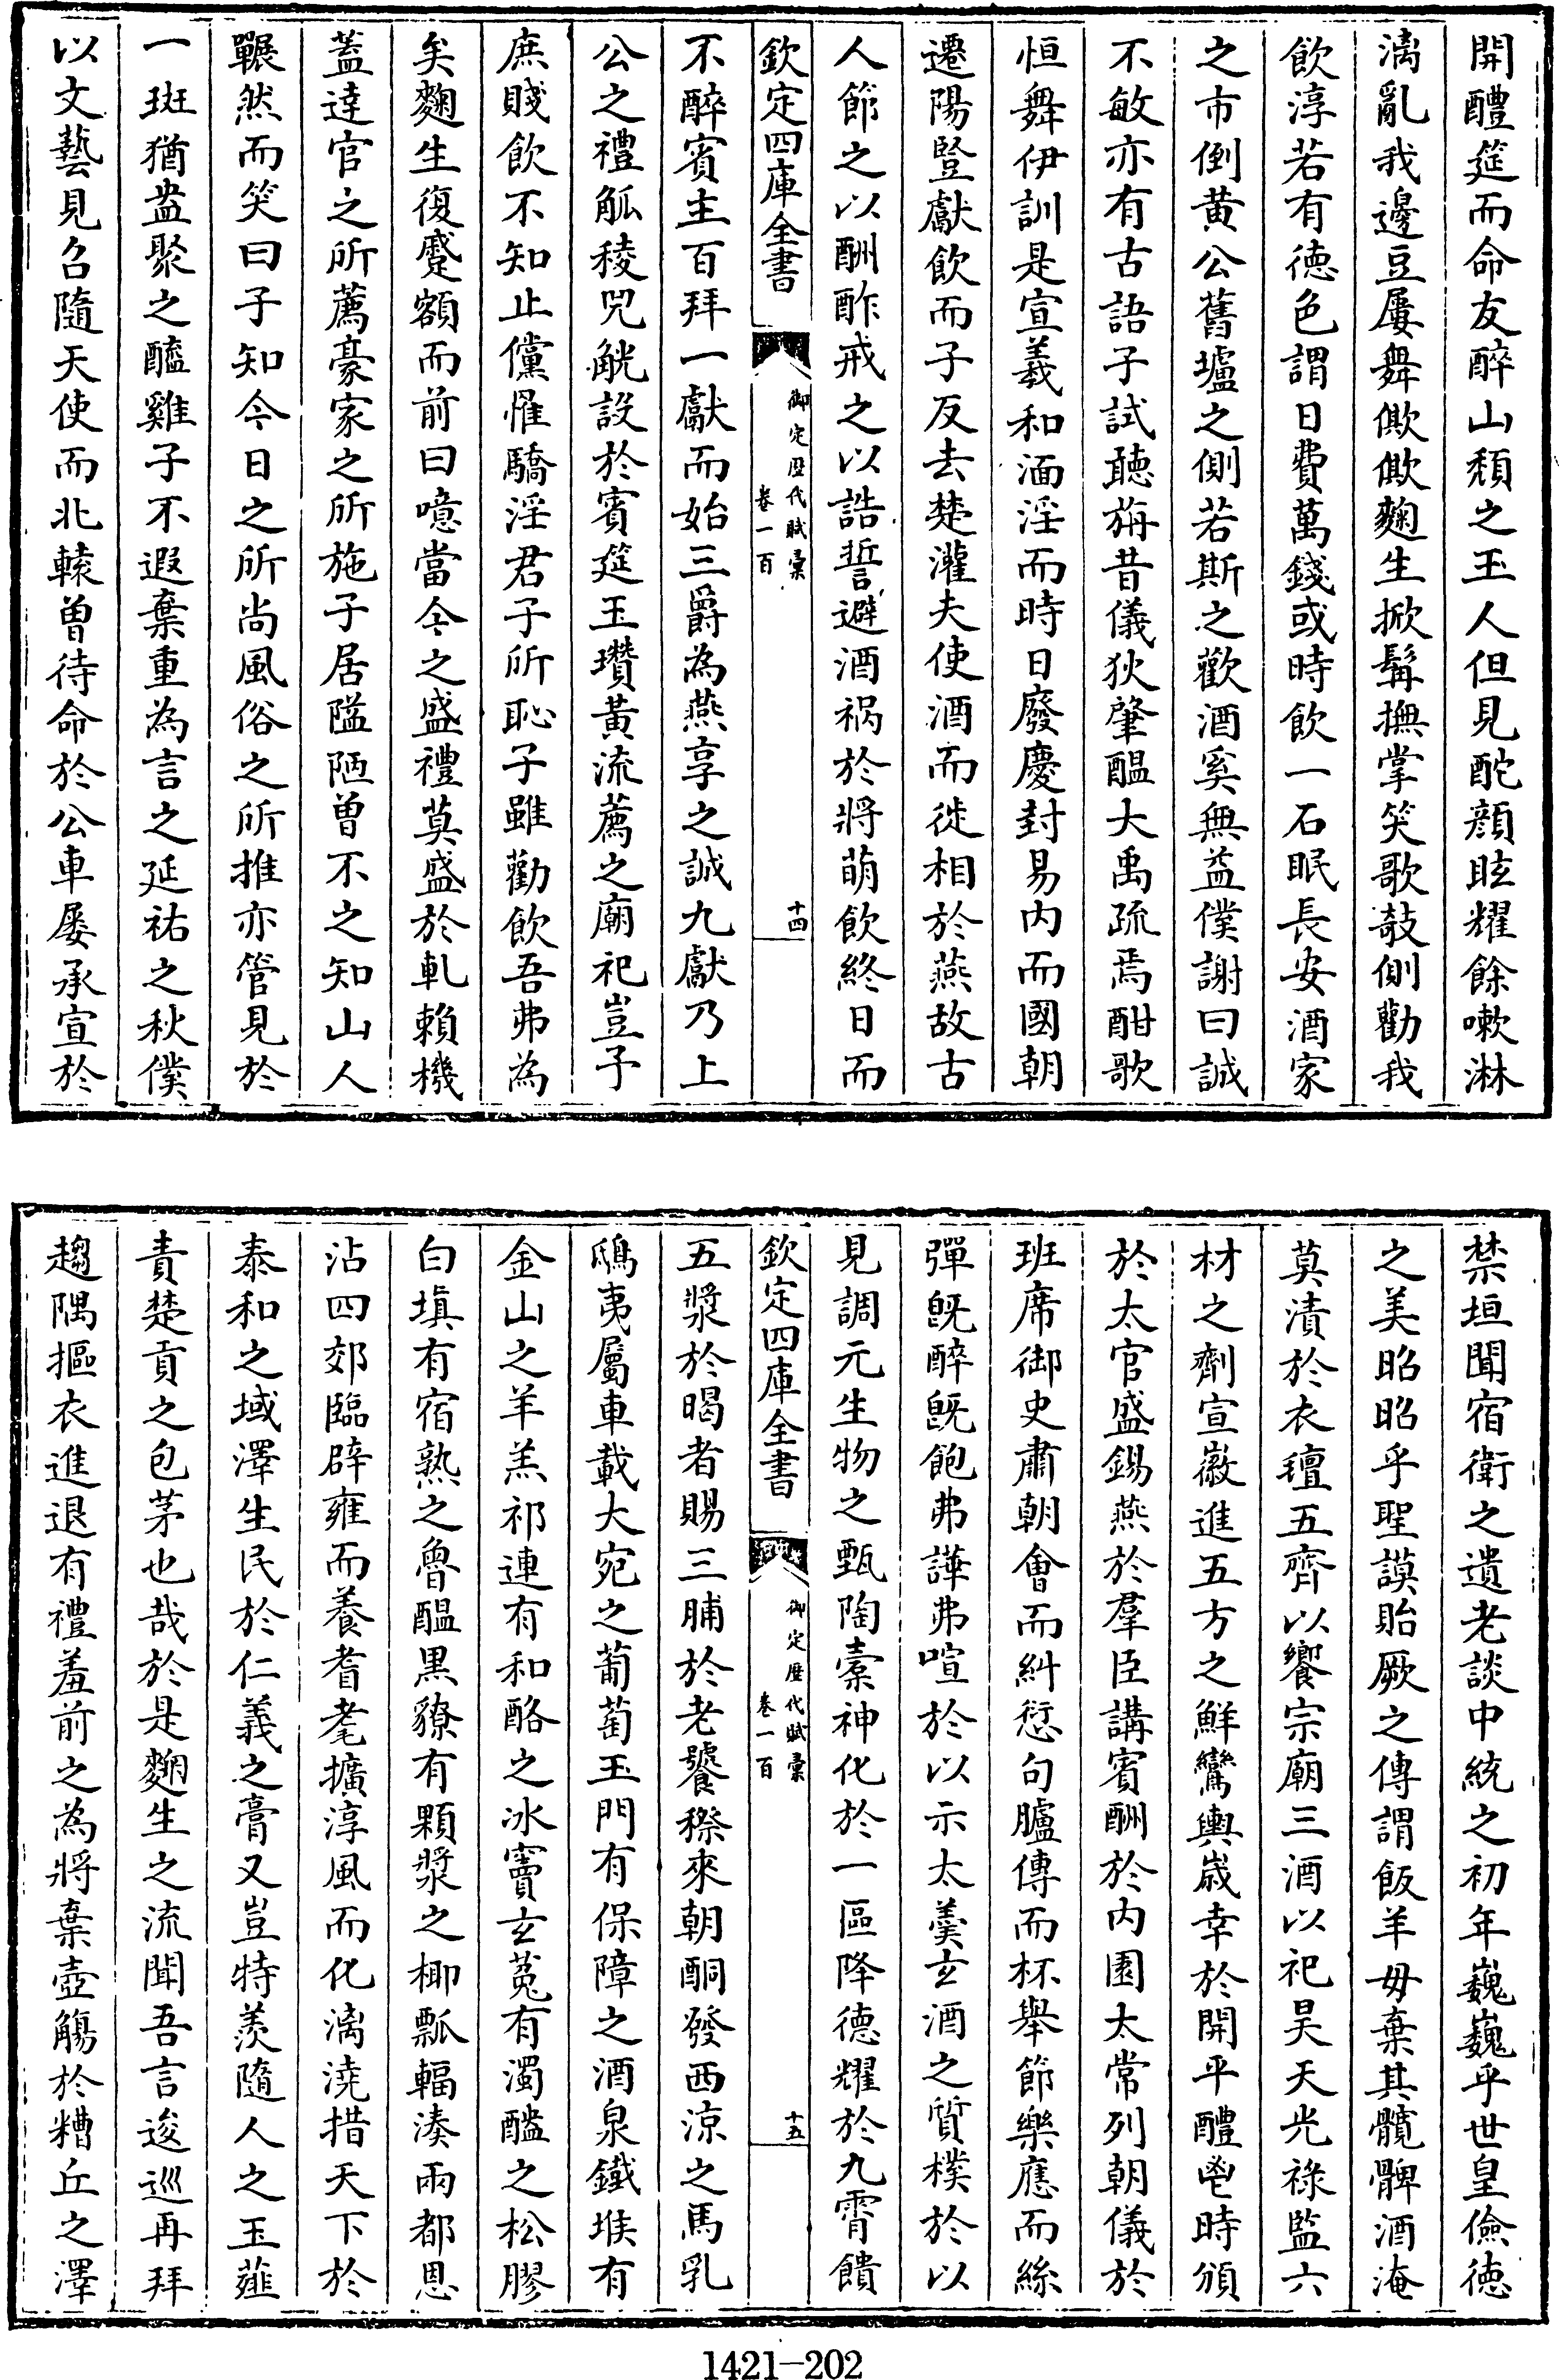 開醴筵而命友醉山頹之玉人但見酡顔眩耀餘嗽淋
漓亂我邊豆屢舞僛僛麴生掀髯撫掌笑歌敲側勸我
飲淳若有徳色謂日費萬錢或時飲一石眠長安酒家
之市倒黄公舊壚之側若斯之歡酒奚無益僕謝曰誠
不敏亦有古語子試聽旃昔儀狄肇醖大禹疏焉酣歌
恒舞伊訓是宣羲和湎淫而時日廢慶封易内而國朝
遷陽豎獻飲而子反去楚灌夫使酒而徙相於燕故古
人節之以酬酢戒之以誥誓避酒禍於將萌飲終日而
欽定四庫全書
御定歴代賦彙
卷一百
十四
不醉賓主百拜一獻而始三爵為燕享之誠九獻乃上
公之禮觚稜兕觥設於賓筵玉瓚黃流薦之廟祀豈子
庶賤飲不知止儻惟驕淫君子所恥子雖勸飲吾弗為
矣麴生復蹙額而前曰噫當今之盛禮莫盛於軋賴機
蓋達官之所薦豪家之所施子居隘陋曽不之知山人
冁然而笑曰子知今日之所尚風俗之所推亦管見於
一斑猶盎聚之醯雞子不遐棄重為言之延祐之秋僕
以文藝見召隨天使而北轅曽待命於公車屡承宣於
禁垣聞宿衛之遺老談中統之初年巍巍乎世皇儉徳
之美昭昭乎聖謨貽厥之傳謂飯羊毋棄其髖髀酒淹
莫漬於衣䄠五齊以饗宗廟三酒以祀昊天光祿監六
材之劑宣徽進五方之鮮鸞輿歲幸於開平醴鬯時頒
於太官盛錫燕於羣臣講賓酬於内園太常列朝儀於
班席御史肅朝會而糾愆句臚傳而杯舉節樂應而絲
彈既醉既飽弗譁弗喧於以示太羮玄酒之質樸於以
見調元生物之甄陶橐神化於一區降徳耀於九霄饋
欽定四庫全書
御定歴代賦彙
卷一百
十五
五漿於暍者賜三脯於老饕穄來朝酮發西涼之馬乳
鴟夷屬車載大宛之葡萄玉門有保障之酒泉鐵堠有
金山之羊羔祁連有和酪之冰竇玄菟有濁醠之松膠
白塡有宿熟之魯醖黒獠有顆漿之椰瓢輻湊兩都恩
沾四郊臨辟雍而養耆耄擴淳風而化漓澆措天下於
泰和之域澤生民於仁義之膏又豈特羨隨人之玉薤
責楚貢之包茅也哉於是麴生之流聞吾言逡巡再拜
趨隅摳衣進退有禮羞前之為將棄壺觴於糟丘之澤
1421-202